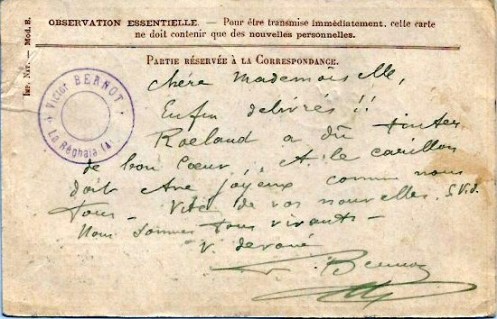 OBSERVATION ESSENTIELLE. — Pour être transmise immédiatement, cette carte
ne doit contenir que des nouvelles personnelles.
PARTIE RÉSERVÉE À LA CORRESPONDANCE.
Mod. B.
Victor BERNOT
La Réghaïa
Chère Mademoiselle,
Enfin délivrés !!
Roeland a dû tinter
de bon cœur, et le carillon
doit être joyeux comme nous
tous — Vite de vos nouvelles. S.V.P.
Nous sommes tous vivants —
V. dévoué